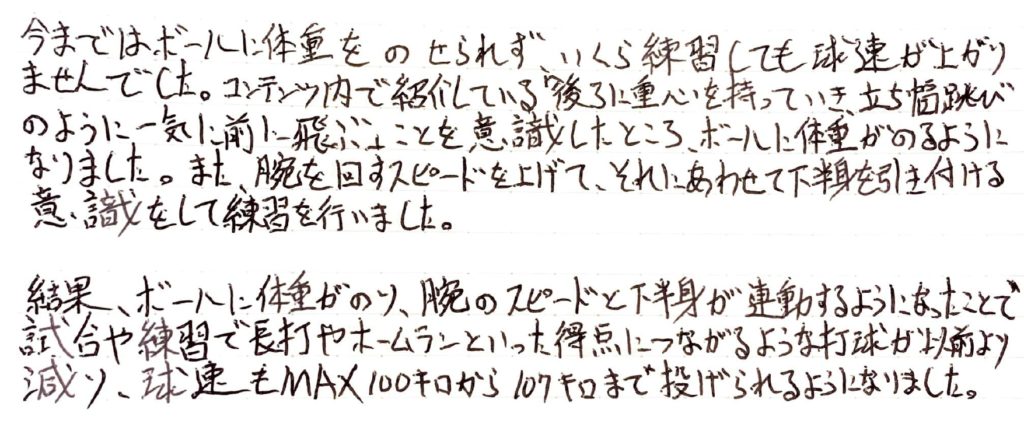 今まではボールに体重をのせられず、いくら練習しても球速が上がり
ませんでした。コンテンツ内で紹介している「後ろに重心を持っていき、立ち幅跳び
のように一気に前に飛ぶ」ことを意識したところ、ボールに体重がのるように
なりました。また、腕を回すスピードを上げて、それにあわせて下半身を引き付ける
意識をして練習を行いました。
結果、ボールに体重がのり、腕のスピードと下半身が連動するようになったことで
試合や練習で長打やホームランといった得点につながるような打球が以前より
減り、球速もMAX100キロから107キロまで投げられるようになりました。